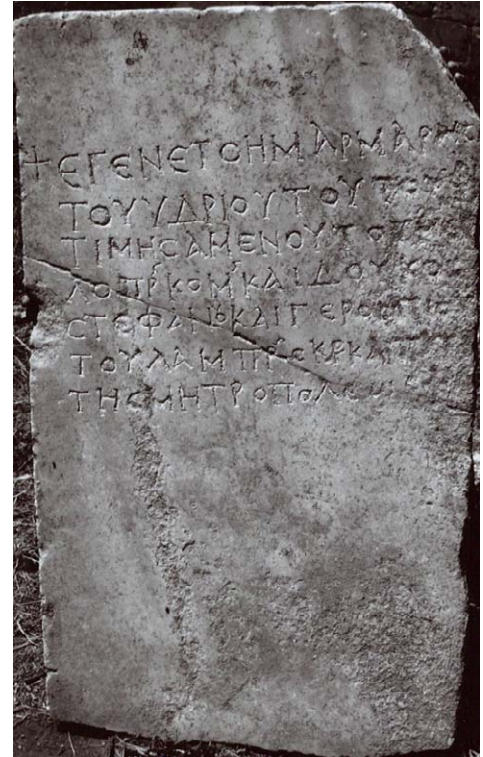 + ΕΓΕΝΕΤΟ Η ΜΑΡΜΑΡΩCΙ
ΤΟΥ ΥΔΡΙΟΥ ΤΟΥΤΟΥ
ΤΙΜΗCΑΜΕΝΟΥ ΤΟΥ
ΛΟΠΡ ΚΟΜ ΚΑΙ ΔΟΥΚΟ
CΤΕΦΑΝΟΥ ΚΑΙ ΓΕΡΟ
ΤΟΥ ΛΑΜΠΡΟ ΚΡ ΚΑΙ Π
ΤΗC ΜΗΤΡΟΠΟΛΕ